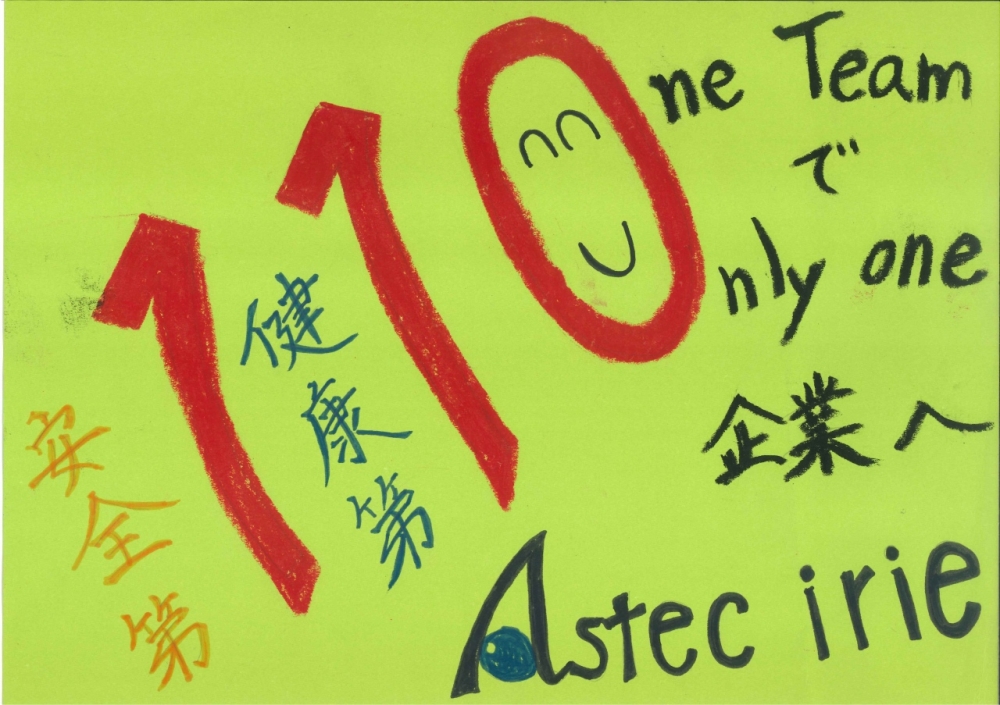 110
安全第
健康第
ne Team
で
nly one
企業へ
Astec irie